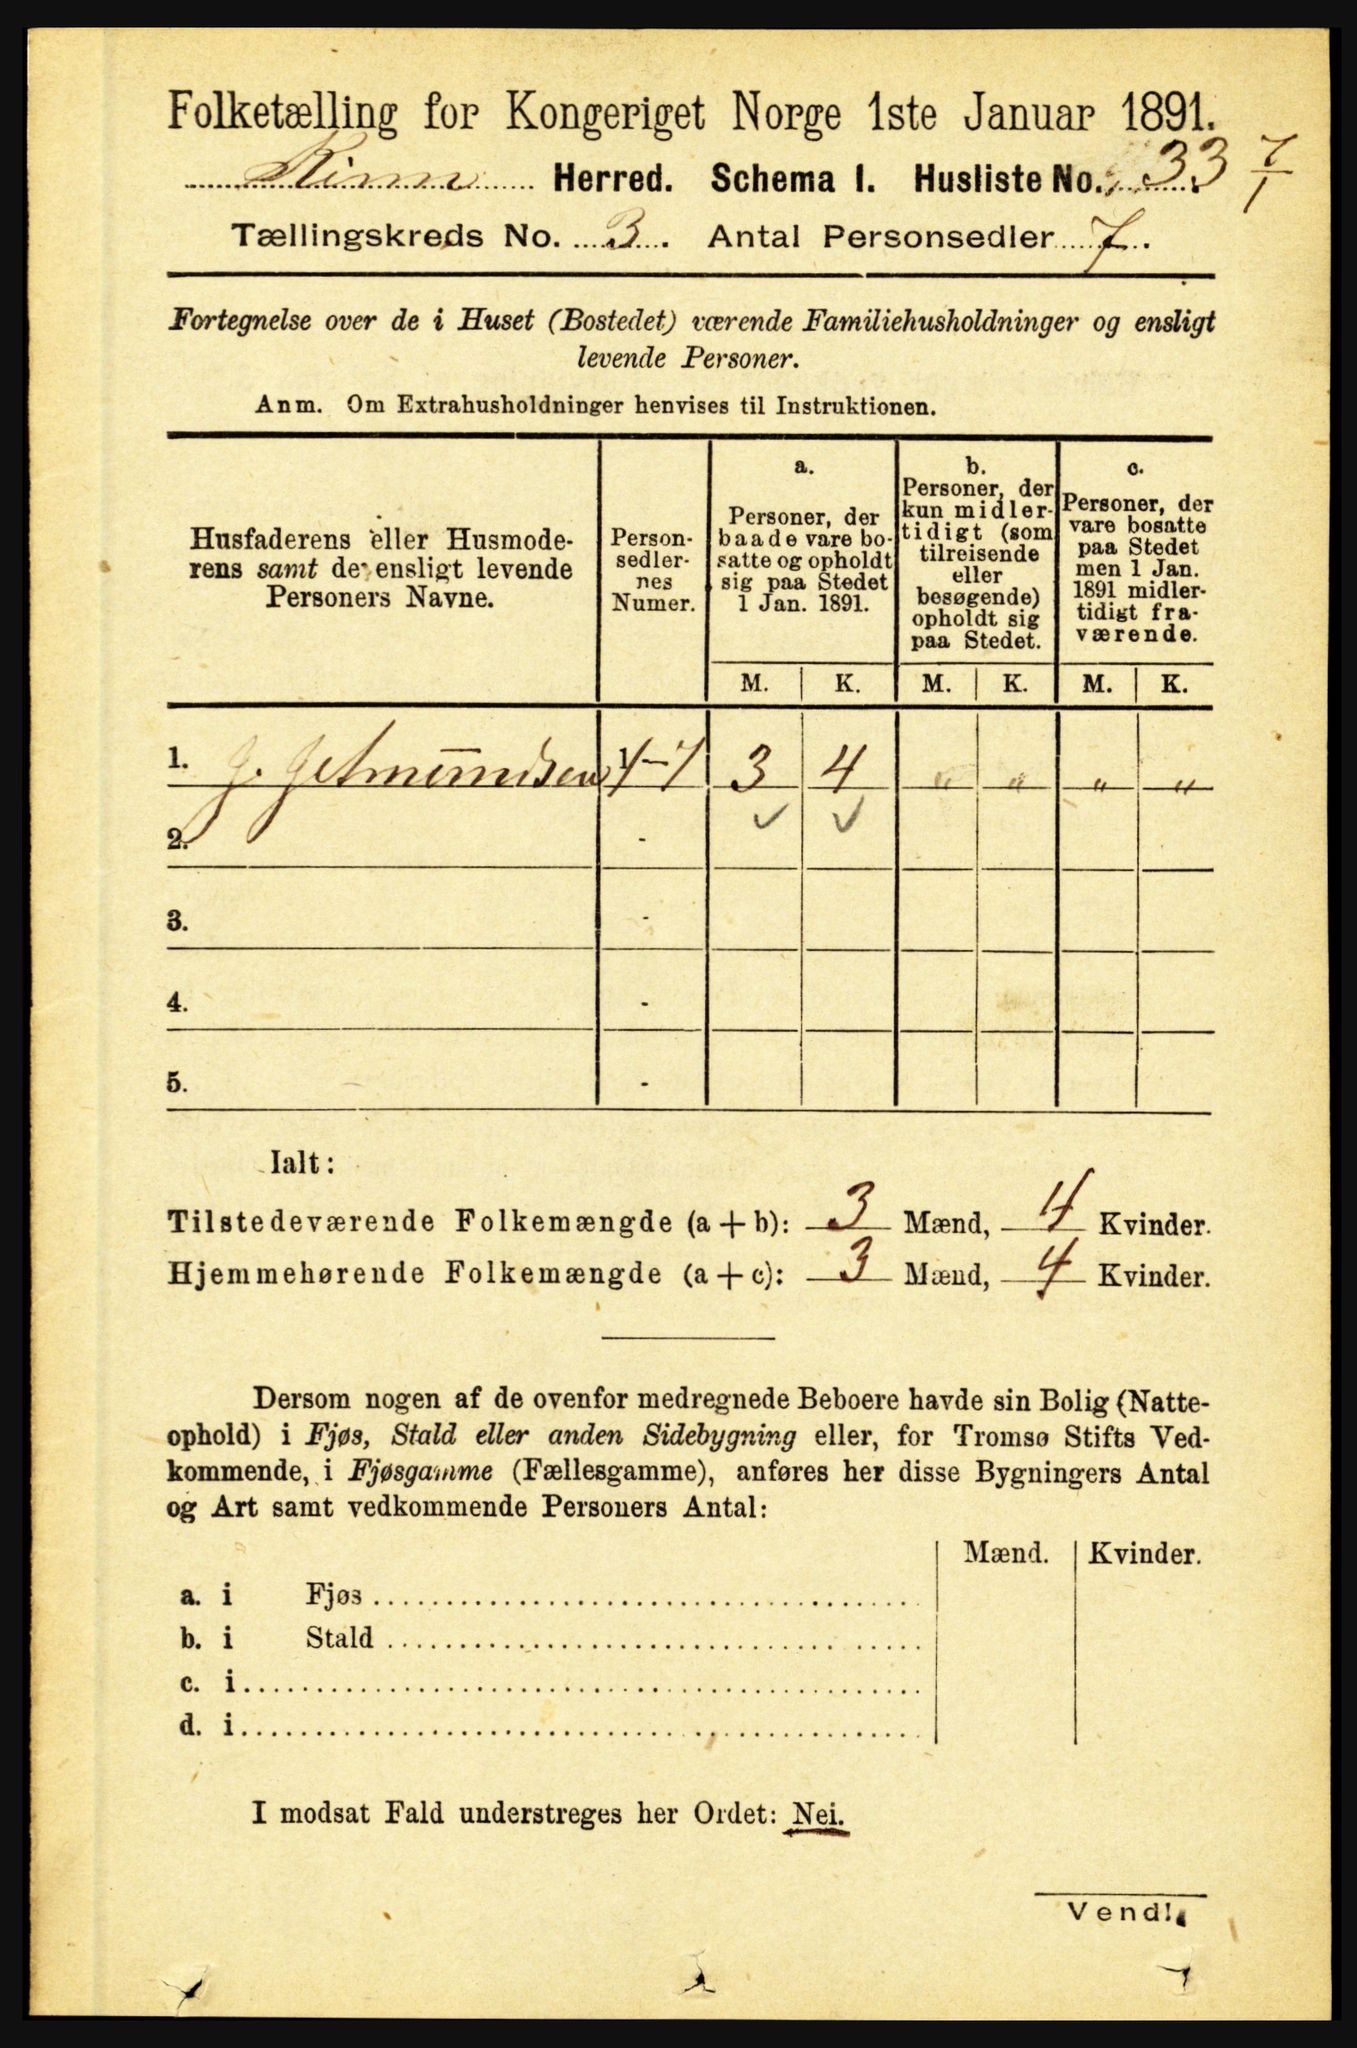 Folketælling for Kongeriget Norge 1ste Januar 1891.
Kinn Herred. Schema I. Husliste No. 33 7/1
Tællingskreds No. 3. Antal Personsedler 7.
Fortegnelse over de i Huset (Bostedet) værende Familiehusholdninger og ensligt
levende Personer.
Anm. Om Extrahusholdninger henvises til Instruktionen.
Husfaderens eller Husmode-
rens samt de ensligt levende
Personers Navne.
Person-
sedler-
nes
Numer.
a.
Personer, der
baade vare bo-
satte og opholdt
sig paa Stedet
1 Jan. 1891.
b.
Personer, der
kun midler-
tidigt (som
tilreisende
eller
besøgende)
opholdt sig
paa Stedet.
c.
Personer, der
vare bosatte
paa Stedet
men 1 Jan.
1891 midler-
tidigt fra-
værende.
M. K. M. K. M. K.
1. 1-7 3 4 " " " "
2. -
3. -
4. -
5. -
Ialt:
Tilstedeværende Folkemængde (a + b): 3 Mænd, 4 Kvinder.
Hjemmehørende Folkemængde (a + c): 3 Mænd, 4 Kvinder.
Dersom nogen af de ovenfor medregnede Beboere havde sin Bolig (Natte-
ophold) i Fjøs, Stald eller anden Sidebygning eller, for Tromsø Stifts Ved-
kommende, i Fjøsgamme (Fællesgamme), anføres her disse Bygningers Antal
og Art samt vedkommende Personers Antal:
Mænd. Kvinder.
a. i Fjøs
b. i Stald
c. i
d. i
I modsat Fald understreges her Ordet: Nei.
Vend!